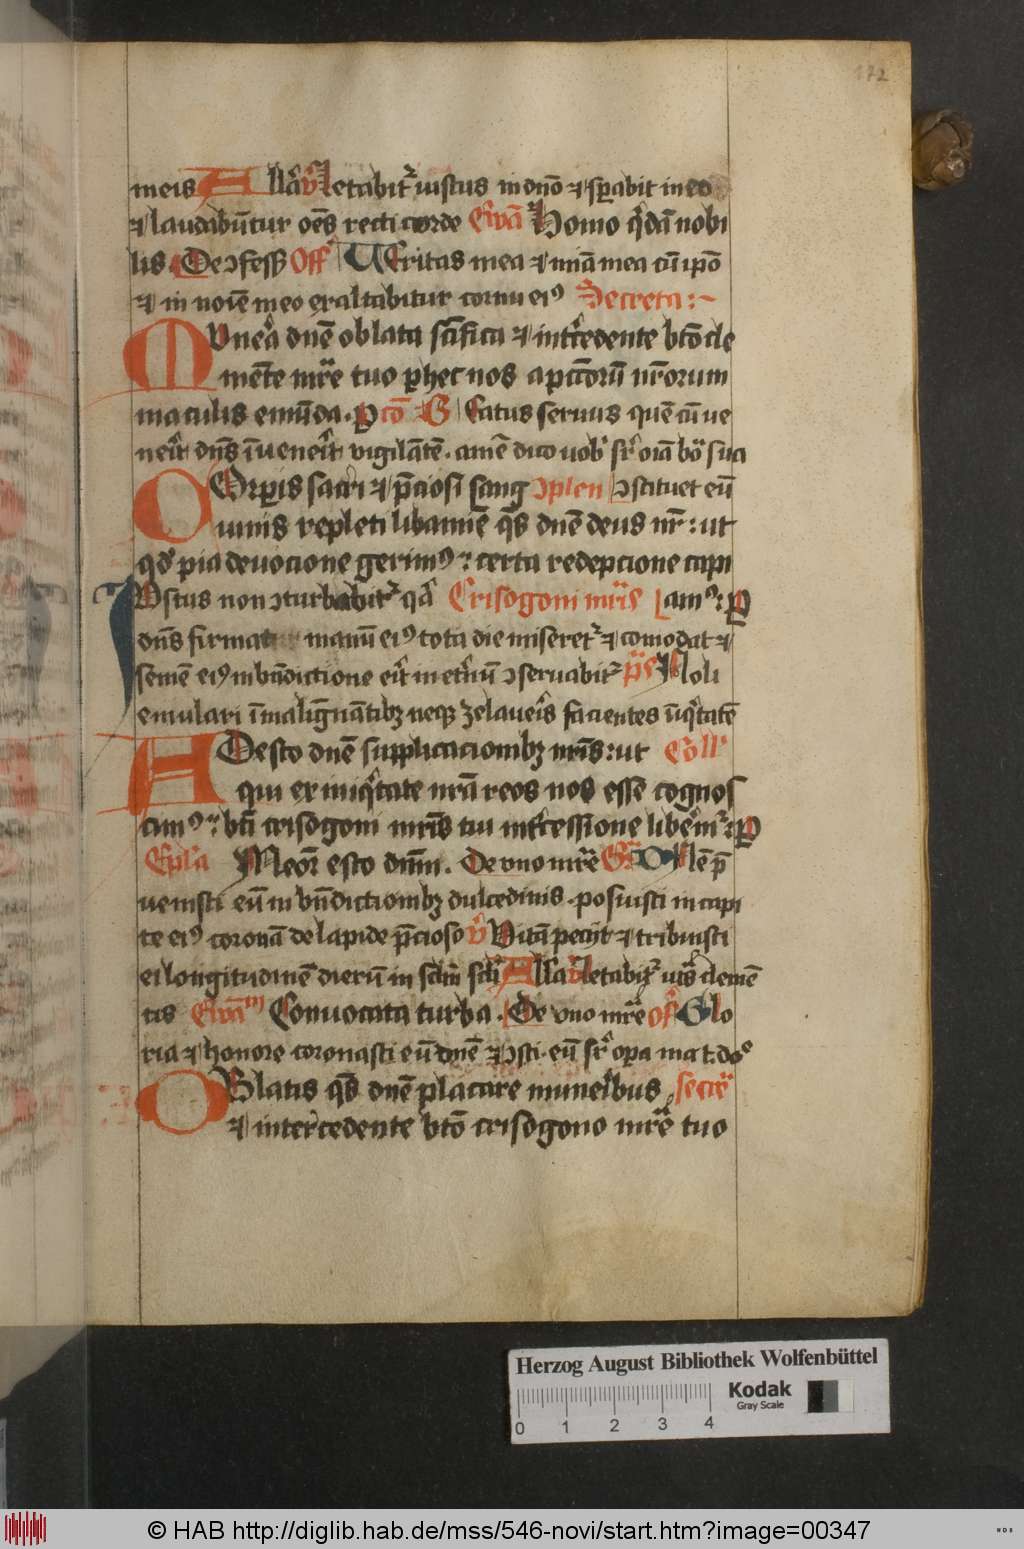 172
meis All'a v̄ letabit᷑ iustus in dn̄o ⁊ sꝑabit in eo
⁊ laudabūtur oēs recti corde Ewā Homo q̇dā nobi
lis De ꝯfess Off Ueritas mea ⁊ mīa mea cū ip̄o
⁊ in noīe meo exaltabitur cornu eiꝰ Secreta
Munera dn̄e oblata scīfica ⁊ int̄cedente btō cle
mēte mr̄e tuo ꝑ hec nos a pcc̄torū nr̄orum
maculis emūda. ꝑ cō B eatus seruus quē cū ve
nerit dn̄s īuenerit vigilātē. amē dico uob sr̄ oīa bō sua
COrꝑis sacri ⁊ p̄ciosi sang ꝯplen ꝯstituet eū
uinis repleti libamīē q̄s dn̄e deus nr̄: ut
qd̄ pia deuocione gerimꝰ: certa redēpcione capi
IUstus non ꝯturbabit᷑ q̄ Crisogoni mr̄is amꝰ: ꝑ
dn̄s firmat manū eiꝰ tota die miseret᷑ ⁊ comodat ⁊
semē eiꝰ in bn̄dictione erit in et̄nū ꝯseruabit᷑ p̄s Noli
emulari ī malignātibꝫ neqꝫ zelaueris facientes īiq̇tatē
ADesto dn̄e supplicacionibꝫ nr̄is: ut Coll'
qui ex iniq̇tate nr̄a reos nos esse cognos
cimꝰ: bti crisogoni mr̄is tui int̄cessione liberemr᷑: ꝑ
Epl'a Meōr esto dn̄m. De vno mr̄e Gr̄ Dn̄e p̄
uenisti eū in bn̄dictionibꝫ dulcedinis. posuisti in capi
te eiꝰ coronā de lapide p̄cioso v̄ Uitā peciit ⁊ tribuisti
ei longitudinē dierū in sclm̄ scli All'a v̄ letabit᷑ iūs clemē
tis Ewām Conuocata turba. De vno mr̄e off Glo
ria ⁊ honore coronasti eū dn̄e ⁊ ꝯsti. eū sr̄ opa ma t. do
OBlatis q̄s dn̄e placare muneribus, secr̄
⁊ intercedente btō crisogono mr̄e tuo
Herzog August Bibliothek Wolfenbüttel
Kodak
Gray Scale
0 1 2 3 4
© HAB http://diglib.hab.de/mss/546-novi/start.htm?image=00347